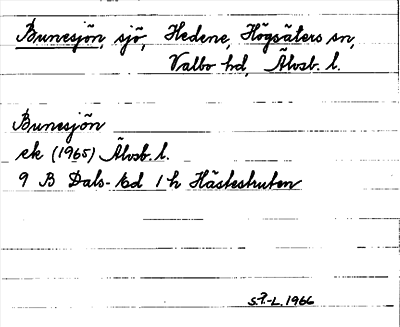 Bunesjön, sjö, Hedene, Högsäters sn,
Valbo hd, Älvsb. l.
Bunesjön
ek (1965) Älvsb. l.
9 B Dals-Ed 1 h Hästeskruten
S.P.-L. 1966